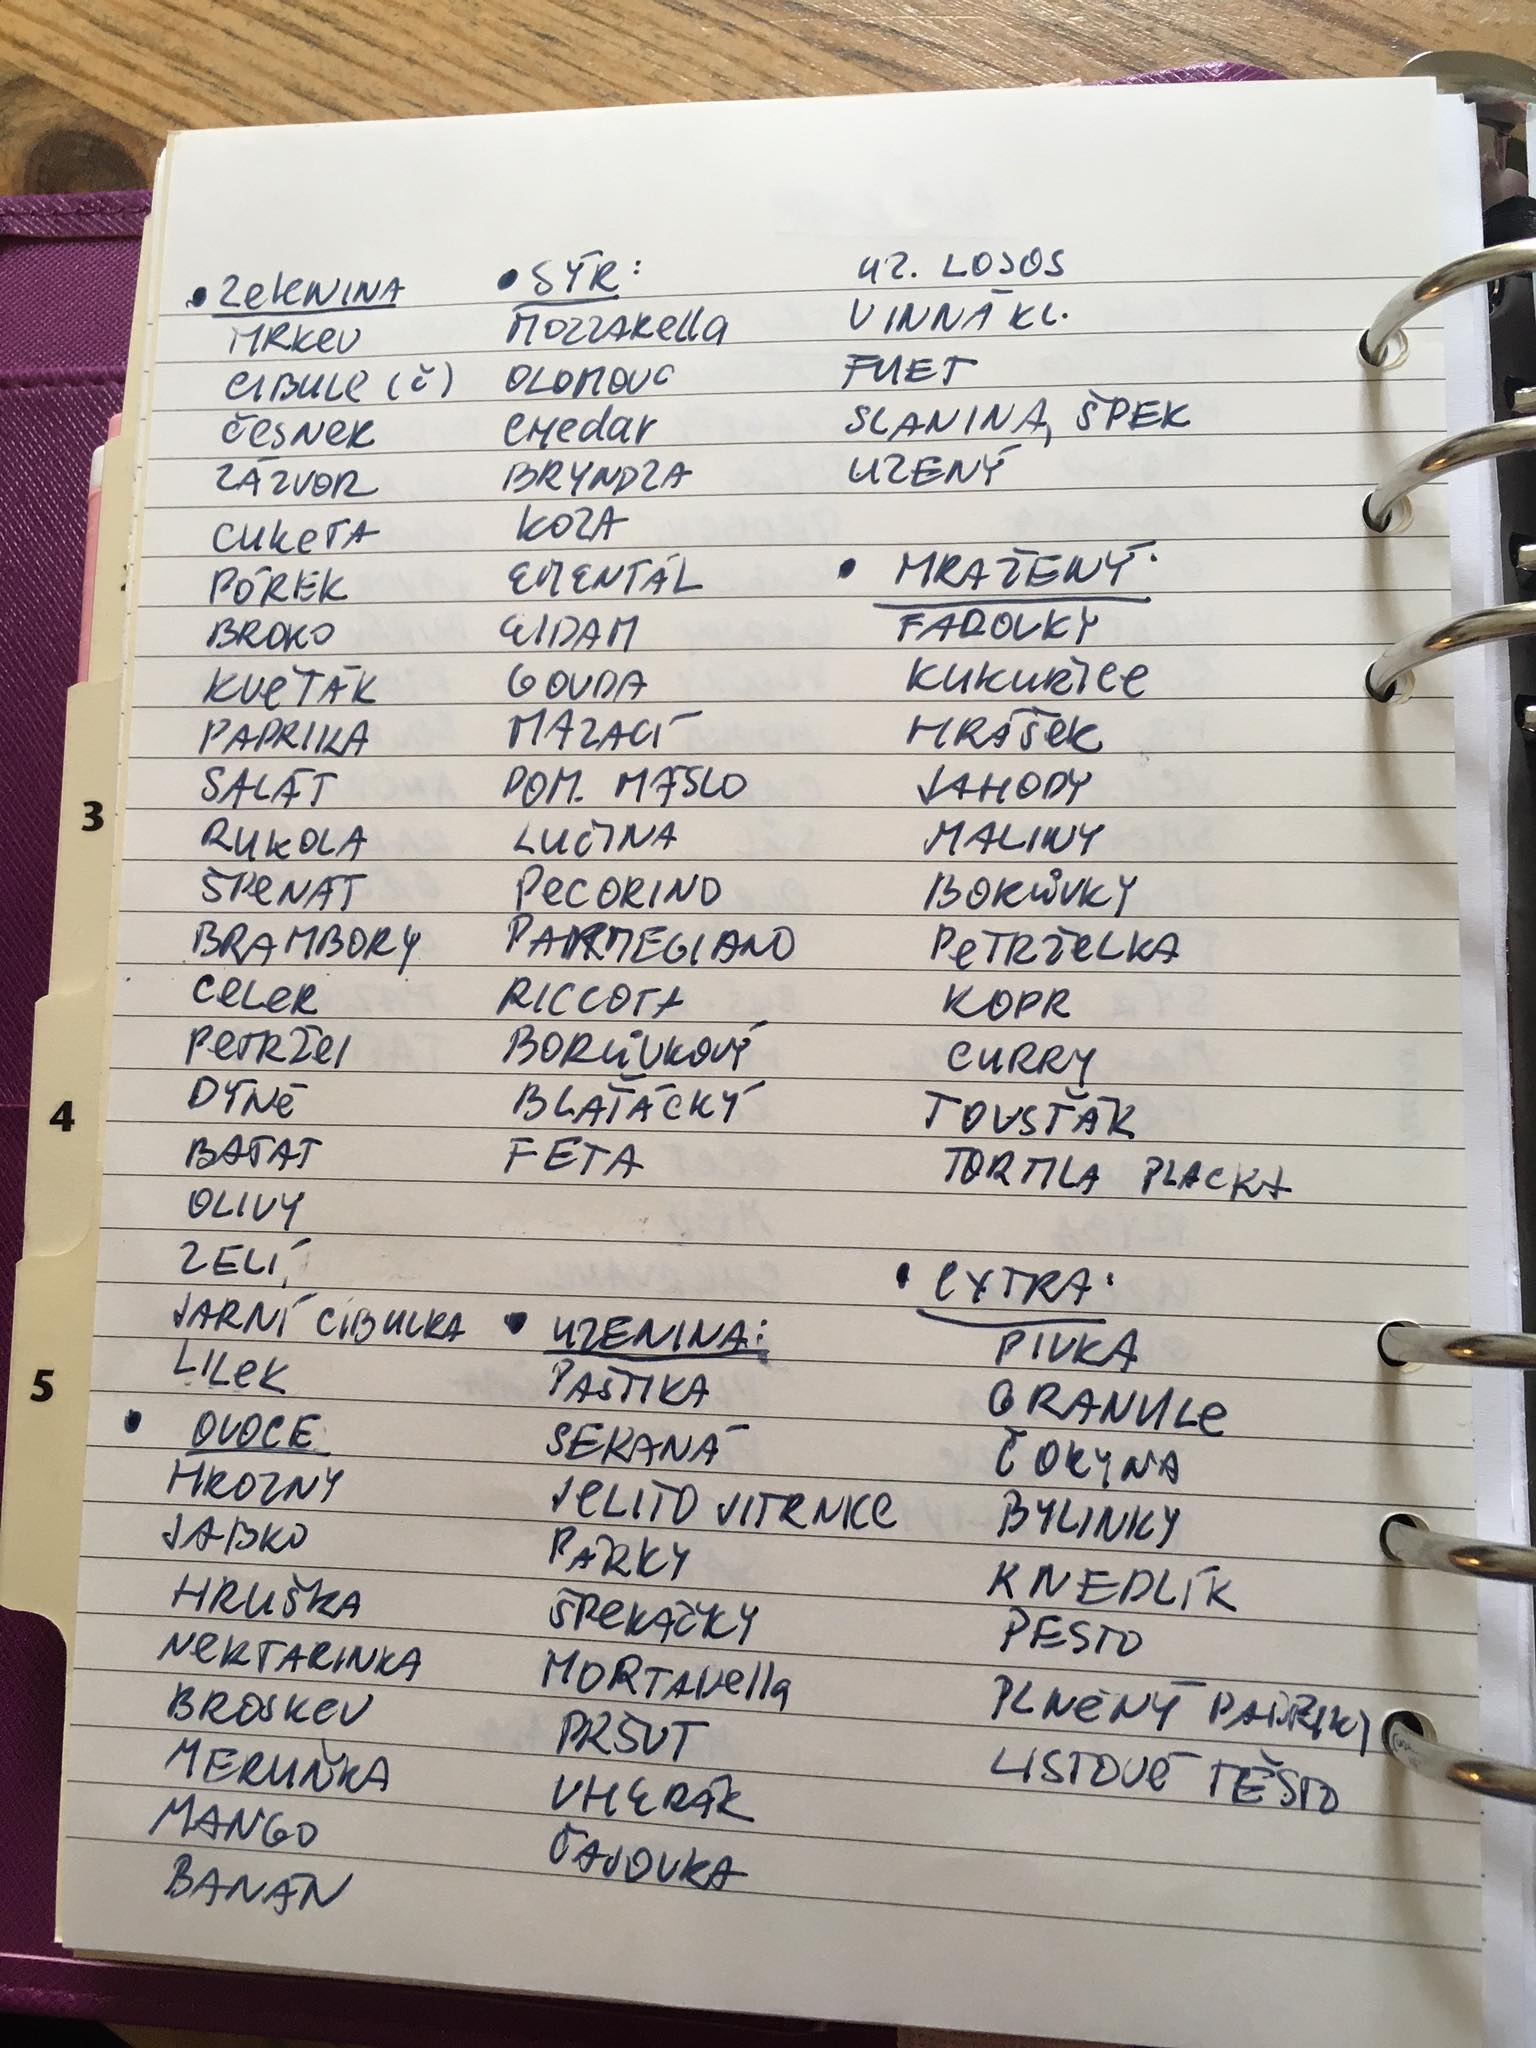 • ZELENINA
MRKEV
CIBULE (Č)
ČESNEK
ZÁZVOR
CUKETA
PÓREK
BROKO
KVĚŤÁK
PAPRIKA
SALÁT
RUKOLA
ŠPENÁT
BRAMBORY
CELER
PETRŽEl
DÝNĚ
BATAT
OLIVY
ZELÍ
JARNÍ CIBULKA
LILEK
• OVOCE
HROZNY
JABKO
HRUŠKA
NEKTARINKA
BROSKEV
MERUŇKA
MANGO
BANÁN
• SÝR:
MOZZARElla
OLOMOUC
CHEdar
BRYNDZA
KOZA
EMENTÁL
EIDAM
GOUDA
MAZACÍ
POM. MÁSLO
LUČINA
PECORINO
PARMEGIANO
RICCOTA
BORŮVKOVÝ
BLAŤÁCKÝ
FETA
• UZENINA:
PAŠTIKA
SEKANÁ
JELITO JITRNICE
PÁRKY
ŠPEKÁČKY
MORTADElla
PRŠUT
UHERÁK
ČAJOVKA
UZ. LOSOS
VINNÁ KL.
FUET
SLANINA, ŠPEK
UZENÝ
• MRAŽENÝ:
FAZOLKY
KUKUŘICE
HRÁŠEK
JAHODY
MALINY
BORŮVKY
PETRŽELKA
KOPR
CURRY
TOUSŤÁK
TORTILA PLACKA
• EXTRA:
PIVKA
GRANULE
ČOKYNA
BYLINKY
KNEDLÍK
PESTO
PLNĚNÝ PAPRIKY
LISTOVÉ TĚSTO
3
4
5